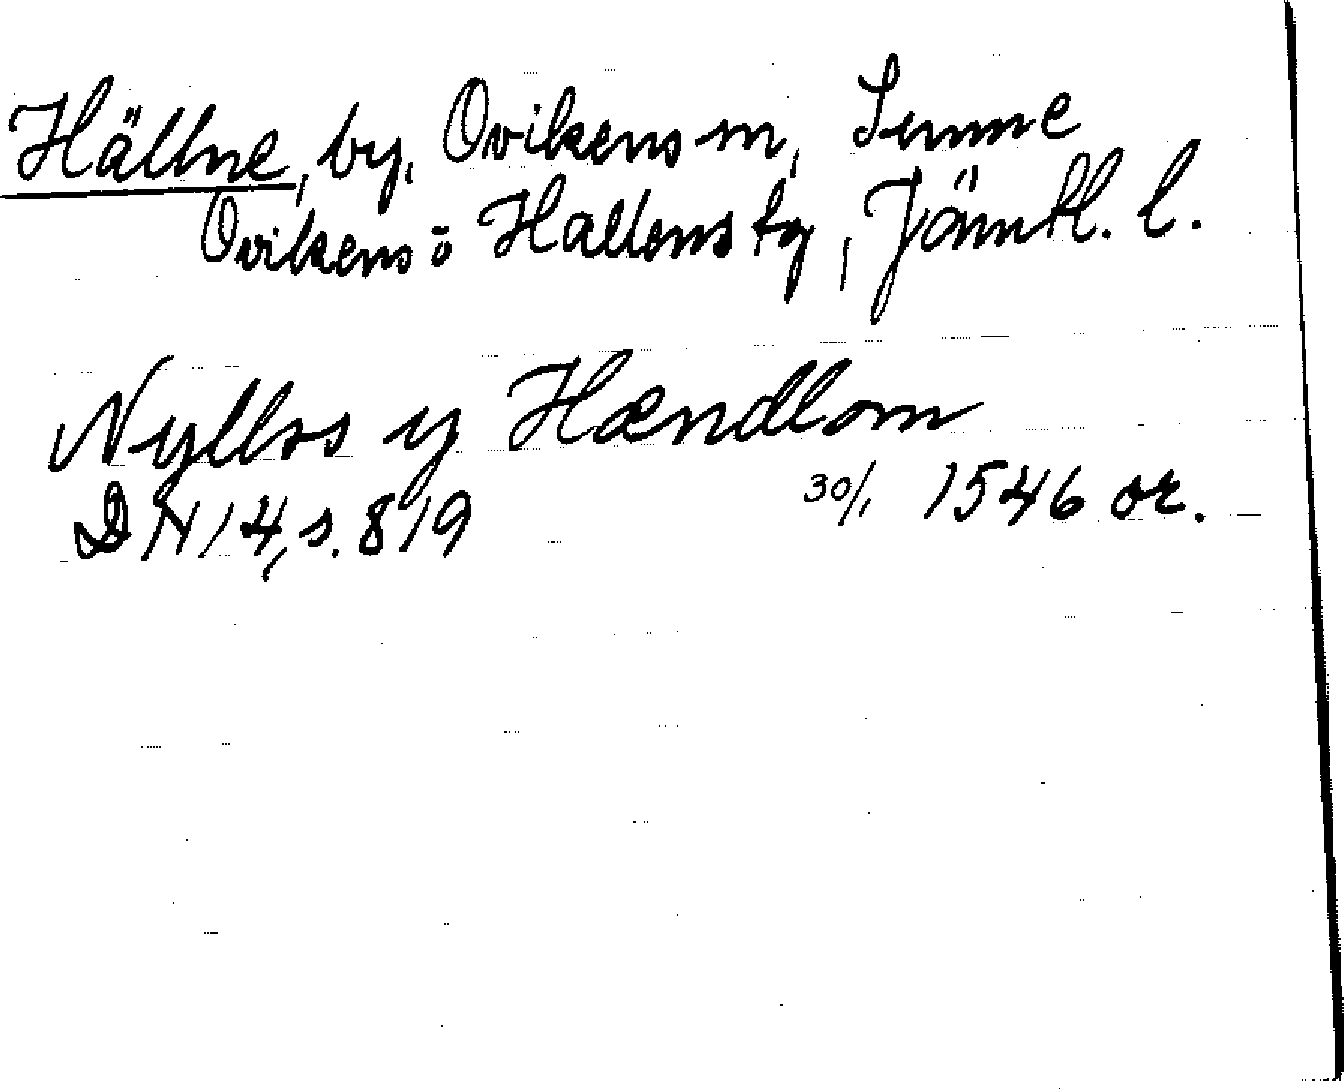 Hällne, by, Ovikens sn, Sunne
Ovikens o Hallens tg, Jämtl. l.
Nyllss y Hændlom
DN 14, s. 819 30/1 1546 or.